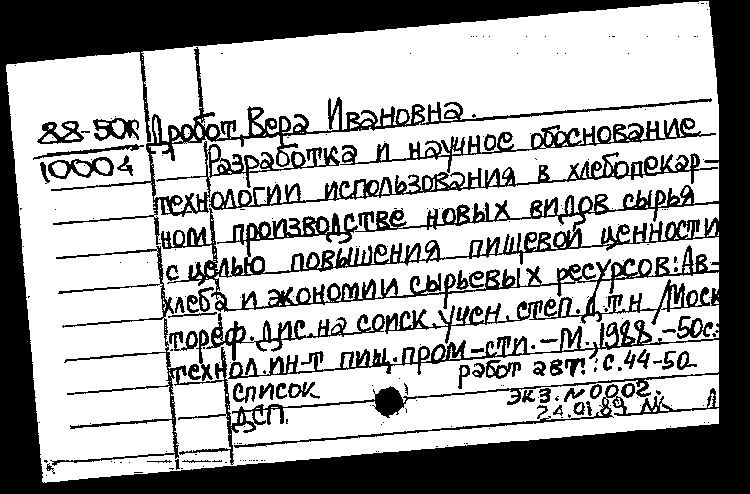 88-50к Дробот, Вера Ивановна.
10004 Разработка и научное обоснование
технологии использования в хлебопекар-
ном производстве новых видов сырья
с целью повышения пищевой ценности
хлеба и экономии сырьевых ресурсов: Ав-
тореф. дис. на соиск. учен. степ. д.т.н /Моск
технол. ин-т пищ. пром-сти. - М., 1988. - 50с.:
список работ авт.: с. 44-50
ДСП. экз. №0002.
24.01.89